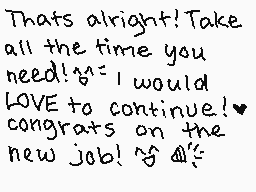 Thats alright! Take
all the time you
need! I would
LOVE to continue! ♥
congrats on the
new job!